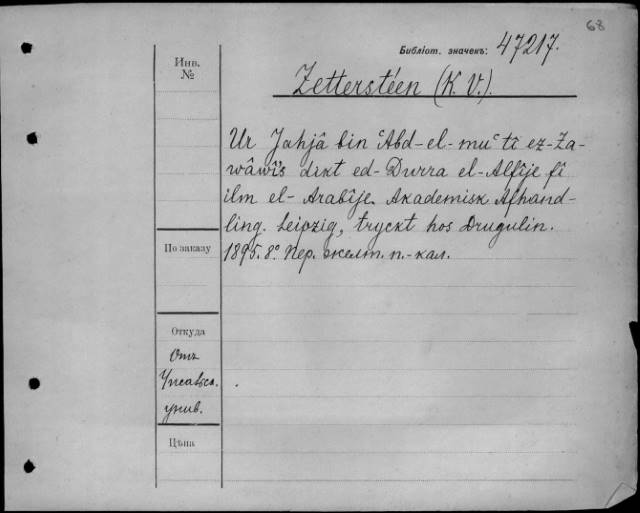 68
Библіот. значекъ: 47217.
Инв.
№
Zettersteen (K. V.).
Ur Jahjâ bin ʿAbd-el-muʿtî ez-Za-
wâwî's dikt ed-Durra el-Alfîje fî
ilm el-Arabîje. Akademisk Afhand-
ling. Leipzig, tryckt hos Drugulin.
По заказу
1895. 8°. Пер. желт. п.-кал.
Откуда
Отъ
Упсальск.
унив.
Цѣна